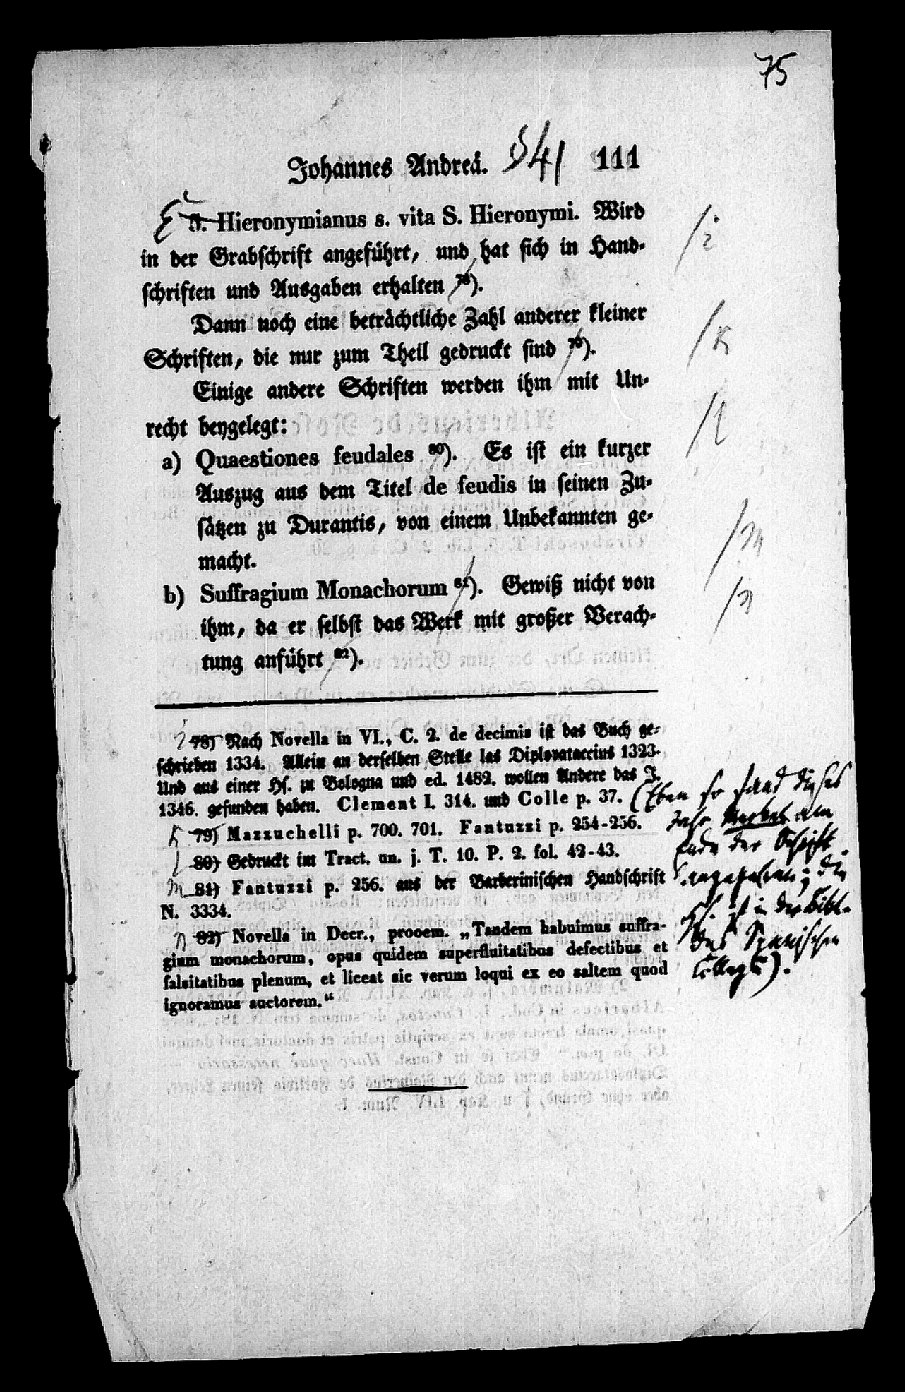 75
Johannes Andreä. 111
5. Hieronymianus s. vita S. Hieronymi. Wird
in der Grabschrift angeführt, und hat sich in Hand-
schriften und Ausgaben erhalten 78).
Dann noch eine beträchtliche Zahl anderer kleiner
Schriften, die nur zum Theil gedruckt sind 79).
Einige andere Schriften werden ihm mit Un-
recht beygelegt:
a) Quaestiones feudales 80). Es ist ein kurzer
Auszug aus dem Titel de feudis in seinen Zu-
sätzen zu Durantis, von einem Unbekannten ge-
macht.
b) Suffragium Monachorum 81). Gewiß nicht von
ihm, da er selbst das Werk mit großer Verach-
tung anführt 82).
78) Nach Novella in VI., C. 2. de decimis ist das Buch ge-
schrieben 1334. Allein an derselben Stelle las Diplovataccius 1323.
Und aus einer Hs. zu Bologna und ed. 1482. wollen Andere das J.
1346. gefunden haben. Clement I. 314. und Colle p. 37.
(Eben so fand dieses
Jahr Merkel am
Ende der Schrift
angegeben; die
Hs. ist in der Bibl.
des Spanischen
Colleg.).
79) Mazzuchelli p. 700. 701. Fantuzzi p. 254-256.
80) Gedruckt im Tract. un. j. T. 10. P. 2. fol. 42-43.
81) Fantuzzi p. 256. aus der Barberinischen Handschrift
N. 3334.
82) Novella in Decr., prooem. „Tandem habuimus suffra-
gium monachorum, opus quidem superfluitatibus defectibus et
falsitatibus plenum, et liceat sic verum loqui ex eo saltem quod
ignoramus auctorem.“